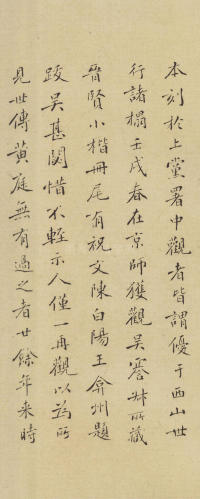 本刻於上黨署中觀者皆謂優于西山世
行諸榻壬戌春在京師獲觀吳謇舛所藏
晉賢小楷冊尾有祝文陳白陽王弇州題
跋吳甚閟惜不輕示人僅一再觀以為所
見世傳黃庭無有過之者廿餘年來時